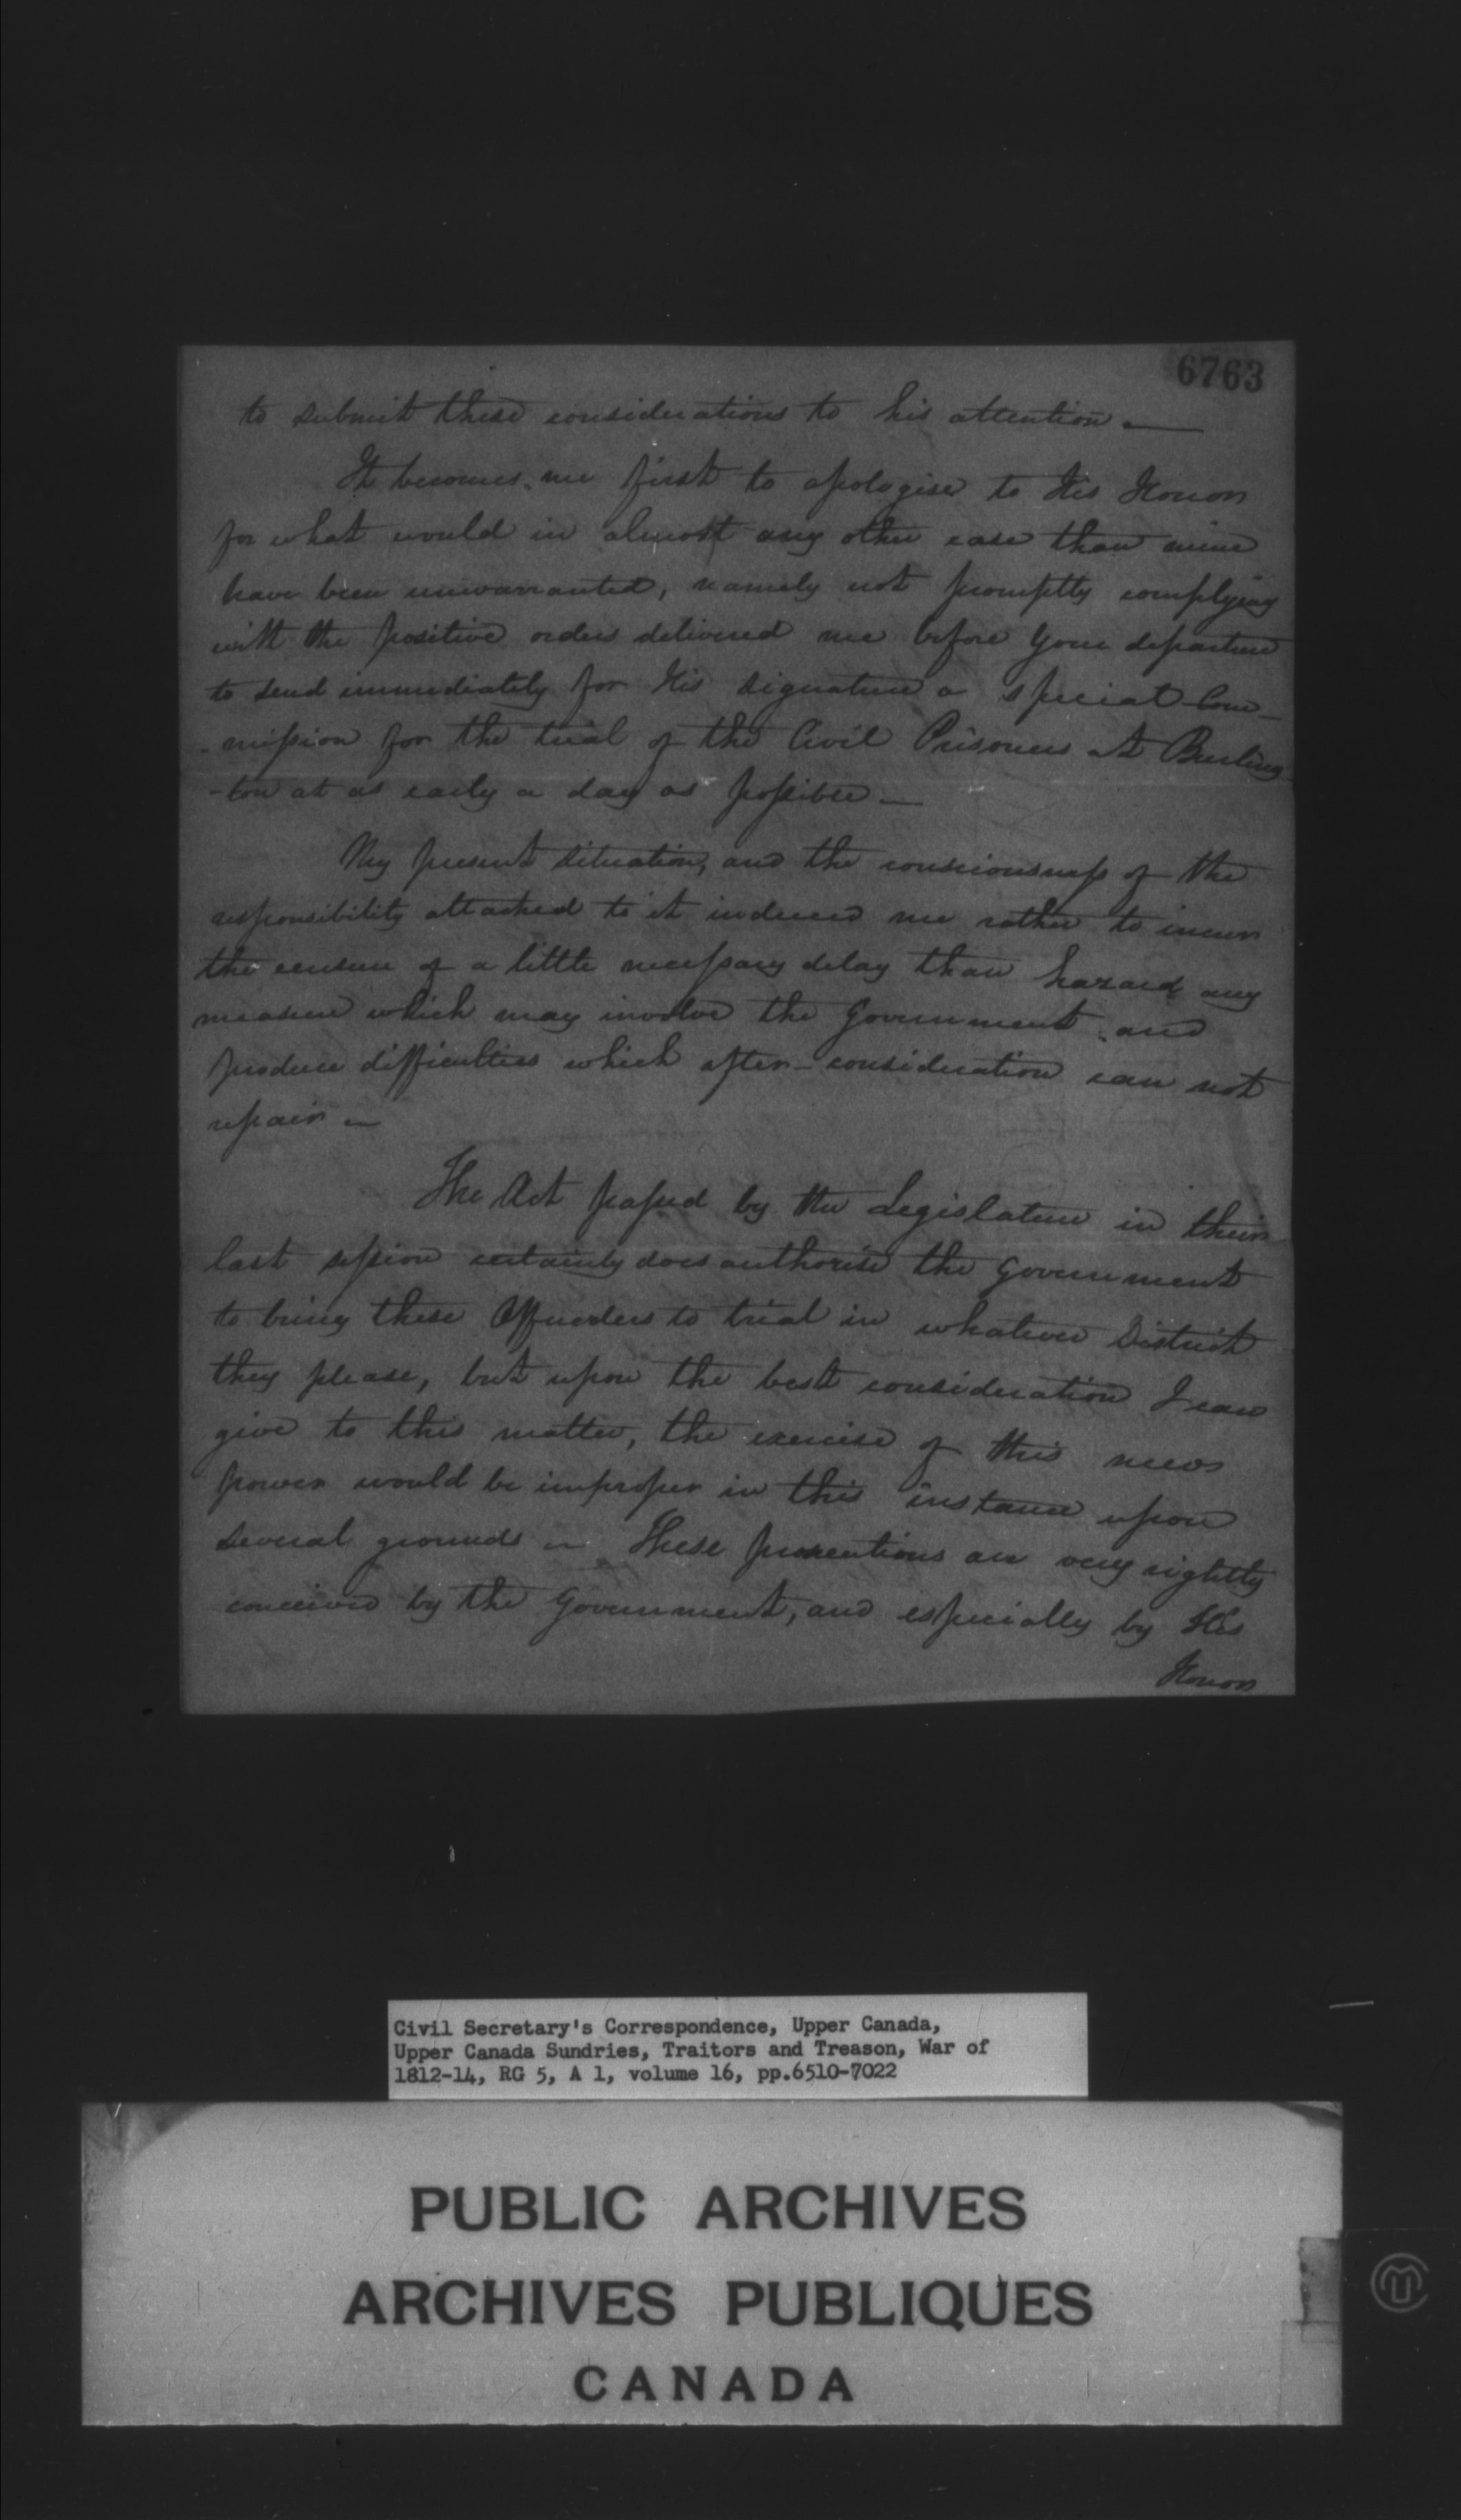 6763
to submit these considerations to his attention. —
It becomes me first to apologise to His Honor
for what would in almost any other case than mine
have been unwarranted, namely not promptly complying
with the positive orders delivered me before Your departure
to send immediately for His signature a special Com-
-mission for the trial of the Civil Prisoners at Burling-
-ton at as early a day as possible —
My present situation, and the consciousness of the
responsibility attached to it induced me rather to incur
the censure of a little necessary delay than hazard any
measure which may involve the Government and
produce difficulties which after-consideration can not
repair —
The Act passed by the Legislature in their
last session certainly does authorise the Government
to bring these Offenders to trial in whatever District
they please, but upon the best consideration I can
give to this matter, the exercise of this new
power would be improper in this instance upon
several grounds — These prosecutions are very rightly
conceived by the Government, and especially by His
Honor
Civil Secretary's Correspondence, Upper Canada,
Upper Canada Sundries, Traitors and Treason, War of
1812-14, RG 5, A 1, volume 16, pp.6510-7022
PUBLIC ARCHIVES
ARCHIVES PUBLIQUES
CANADA